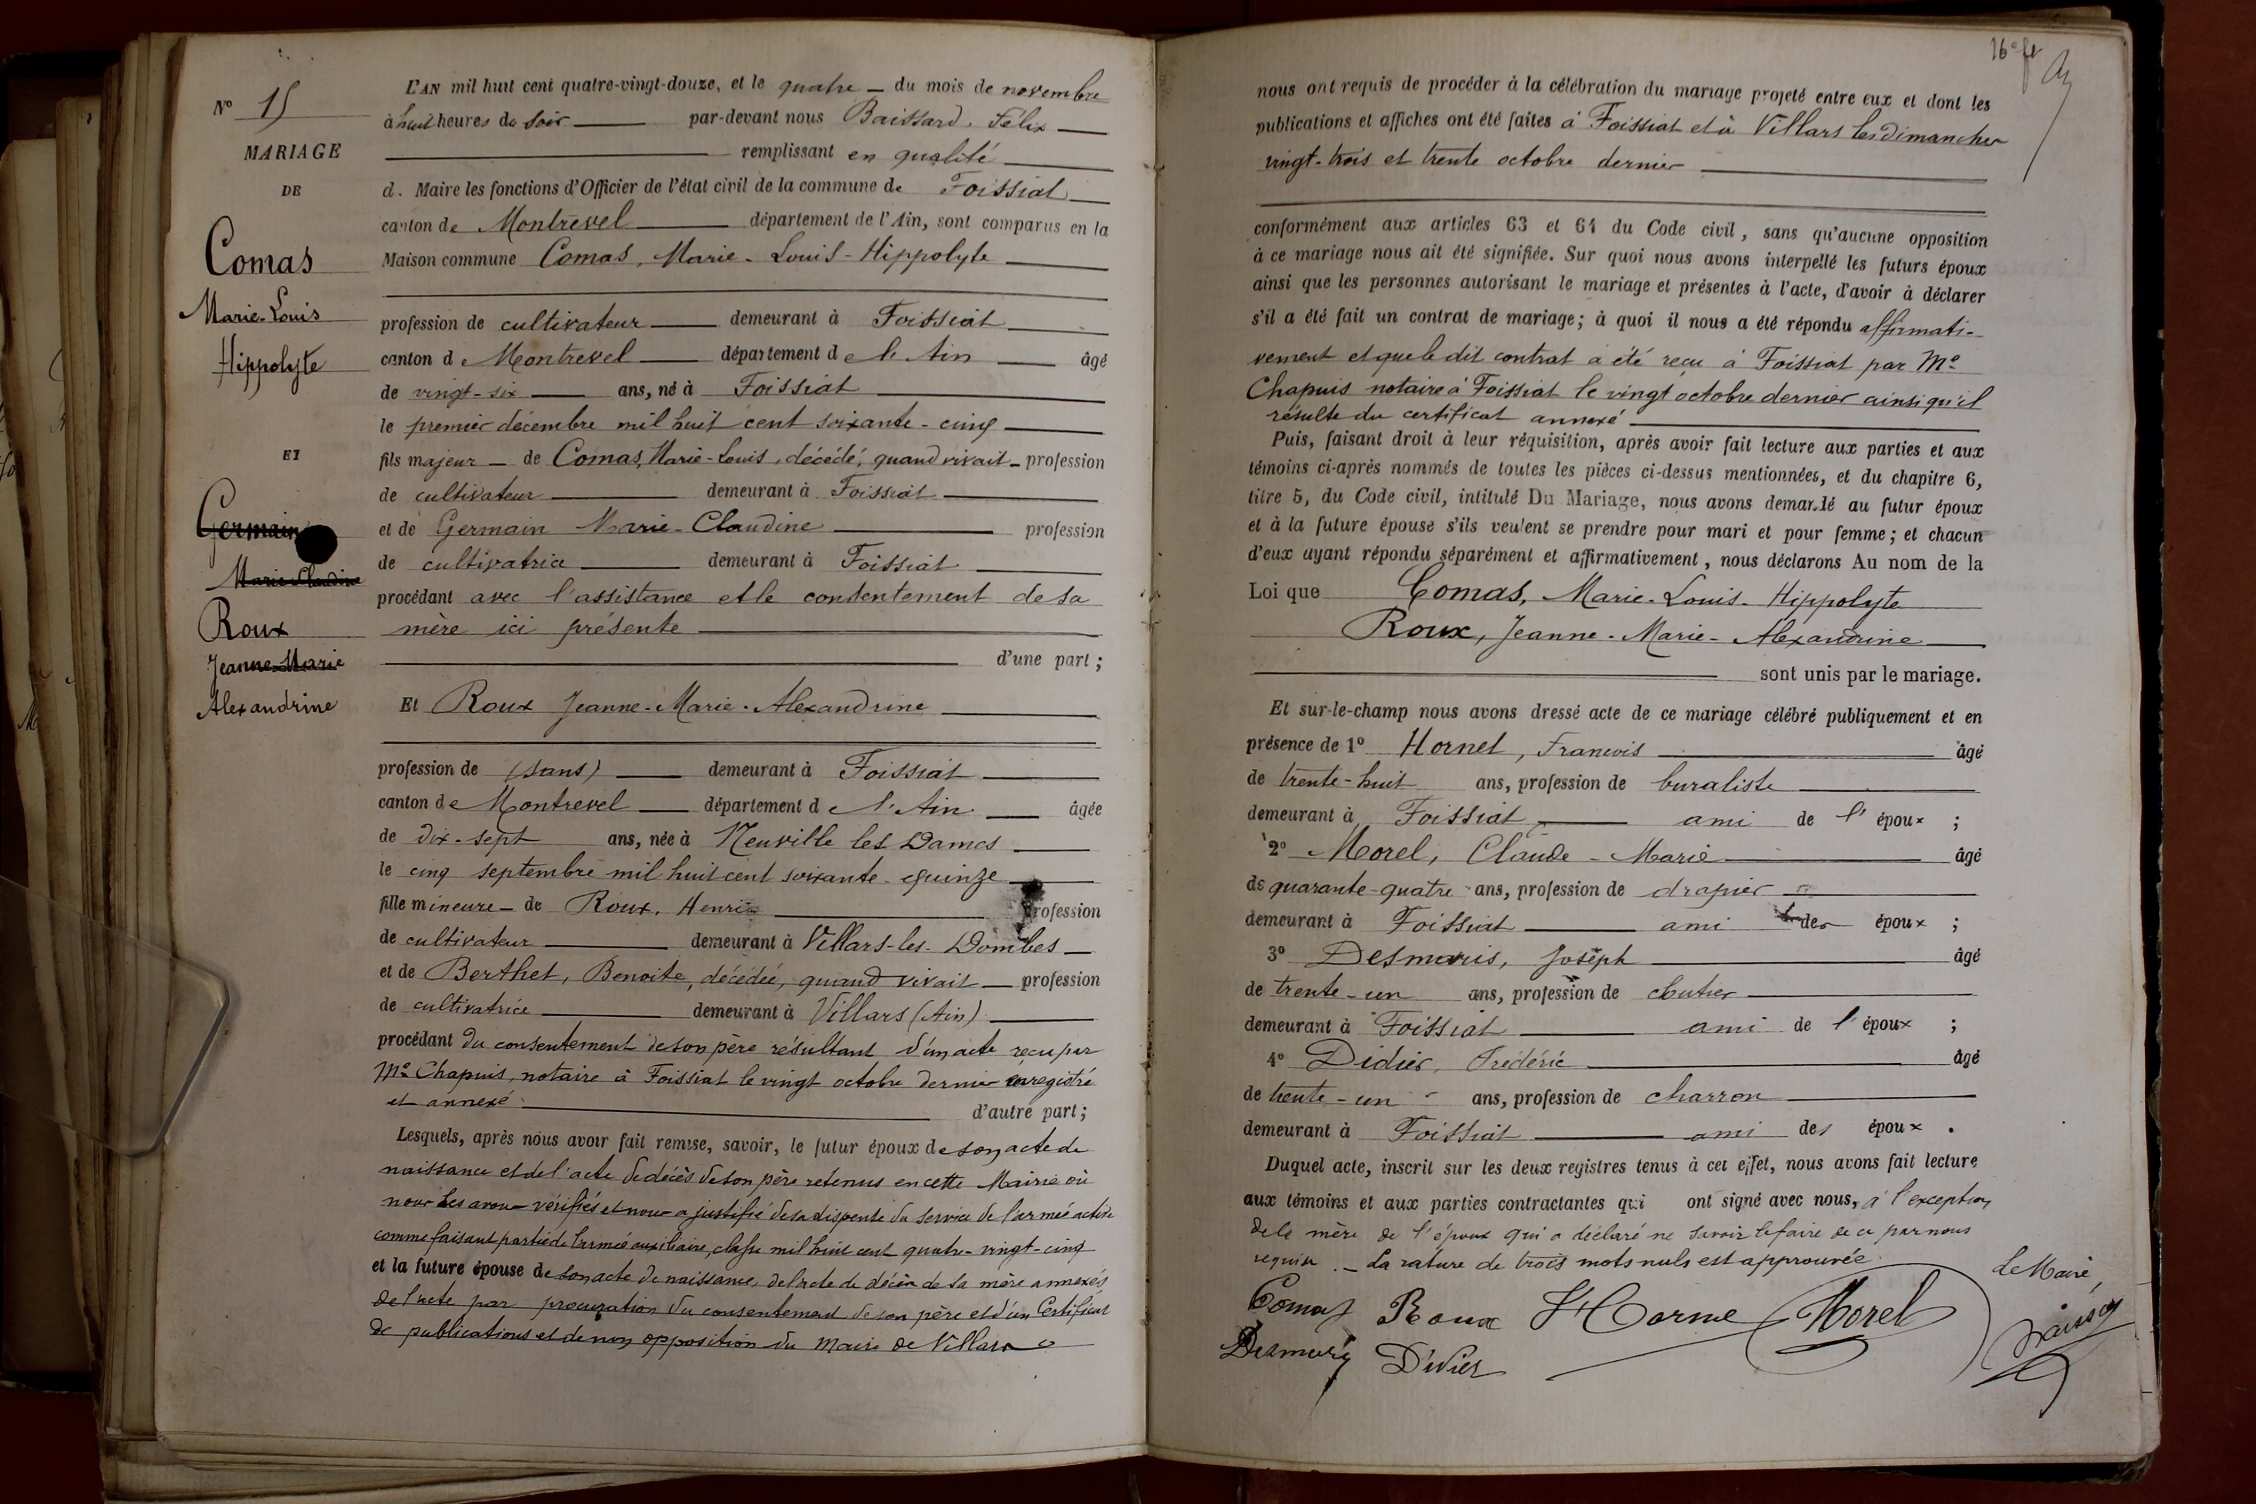 N° 15
MARIAGE
DE
Comas
Marie-Louis
Hippolyte
ET
Germain
Marie-Claudine
Roux
Jeanne-Marie
Alexandrine
L'AN mil huit cent quatre-vingt-douze, et le quatre du mois de novembre
à huit heures du soir par-devant nous Baissard, Félix
remplissant en qualité
d. Maire les fonctions d'Officier de l'état civil de la commune de Foissiat
canton de Montrevel département de l'Ain, sont comparus en la
Maison commune Comas, Marie-Louis-Hippolyte
profession de cultivateur demeurant à Foissiat
canton de Montrevel département de l'Ain âgé
de vingt-six ans, né à Foissiat
le premier décembre mil huit cent soixante-cinq
fils majeur de Comas, Marie-Louis, décédé, quand vivait profession
de cultivateur demeurant à Foissiat
et de Germain Marie-Claudine profession
de cultivatrice demeurant à Foissiat
procédant avec l'assistance et le consentement de sa
mère ici présente
d'une part;
Et Roux Jeanne-Marie-Alexandrine
profession de (sans) demeurant à Foissiat
canton de Montrevel département de l'Ain âgée
de dix-sept ans, née à Neuville les Dames
le cinq septembre mil huit cent soixante-quinze
fille mineure de Roux, Henri profession
de cultivateur demeurant à Villars-les-Dombes
et de Berthet, Benoite, décédée, quand vivait profession
de cultivatrice demeurant à Villars (Ain)
procédant du consentement de son père résultant d'un acte reçu par
Me Chapuis, notaire à Foissiat le vingt octobre dernier enregistré
et annexé
d'autre part;
Lesquels, après nous avoir fait remise, savoir, le futur époux de son acte de
naissance et de l'acte de décès de son père retenus en cette Mairie où
nous les avons vérifiés et nous a justifié de sa dispense du service de l'armée active
comme faisant partie de l'armée auxiliaire, classe mil huit cent quatre-vingt-cinq
et la future épouse de son acte de naissance, de l'acte de décès de sa mère annexés
de l'acte par procuration du consentement de son père et d'un Certificat
de publications et de non opposition du Maire de Villars
16e ft
nous ont requis de procéder à la célébration du mariage projeté entre eux et dont les
publications et affiches ont été faites à Foissiat et à Villars les dimanches
vingt-trois et trente octobre dernier
conformément aux articles 63 et 64 du Code civil, sans qu'aucune opposition
à ce mariage nous ait été signifiée. Sur quoi nous avons interpellé les futurs époux
ainsi que les personnes autorisant le mariage et présentes à l'acte, d'avoir à déclarer
s'il a été fait un contrat de mariage; à quoi il nous a été répondu affirmati-
vement et que le dit contrat a été reçu à Foissiat par Me
Chapuis notaire à Foissiat le vingt octobre dernier ainsi qu'il
résulte du certificat annexé
Puis, faisant droit à leur réquisition, après avoir fait lecture aux parties et aux
témoins ci-après nommés de toutes les pièces ci-dessus mentionnées, et du chapitre 6,
titre 5, du Code civil, intitulé Du Mariage, nous avons demandé au futur époux
et à la future épouse s'ils veulent se prendre pour mari et pour femme; et chacun
d'eux ayant répondu séparément et affirmativement, nous déclarons Au nom de la
Loi que Comas, Marie-Louis-Hippolyte
Roux, Jeanne-Marie-Alexandrine
sont unis par le mariage.
Et sur-le-champ nous avons dressé acte de ce mariage célébré publiquement et en
présence de 1° Hornet, François âgé
de trente-huit ans, profession de buraliste
demeurant à Foissiat ami de l'époux;
2° Morel, Claude-Marie âgé
de quarante-quatre ans, profession de drapier
demeurant à Foissiat ami des époux;
3° Desmaris, Joseph âgé
de trente-un ans, profession de
demeurant à Foissiat ami de l'époux;
4° Didier, Frédéric âgé
de trente-un ans, profession de charron
demeurant à Foissiat ami des époux.
Duquel acte, inscrit sur les deux registres tenus à cet effet, nous avons fait lecture
aux témoins et aux parties contractantes qui ont signé avec nous, à l'exception
de la mère de l'époux qui a déclaré ne savoir le faire de ce par nous
requise. - La rature de trois mots nuls est approuvée
Le Maire,
Comas Roux Morel
Didier